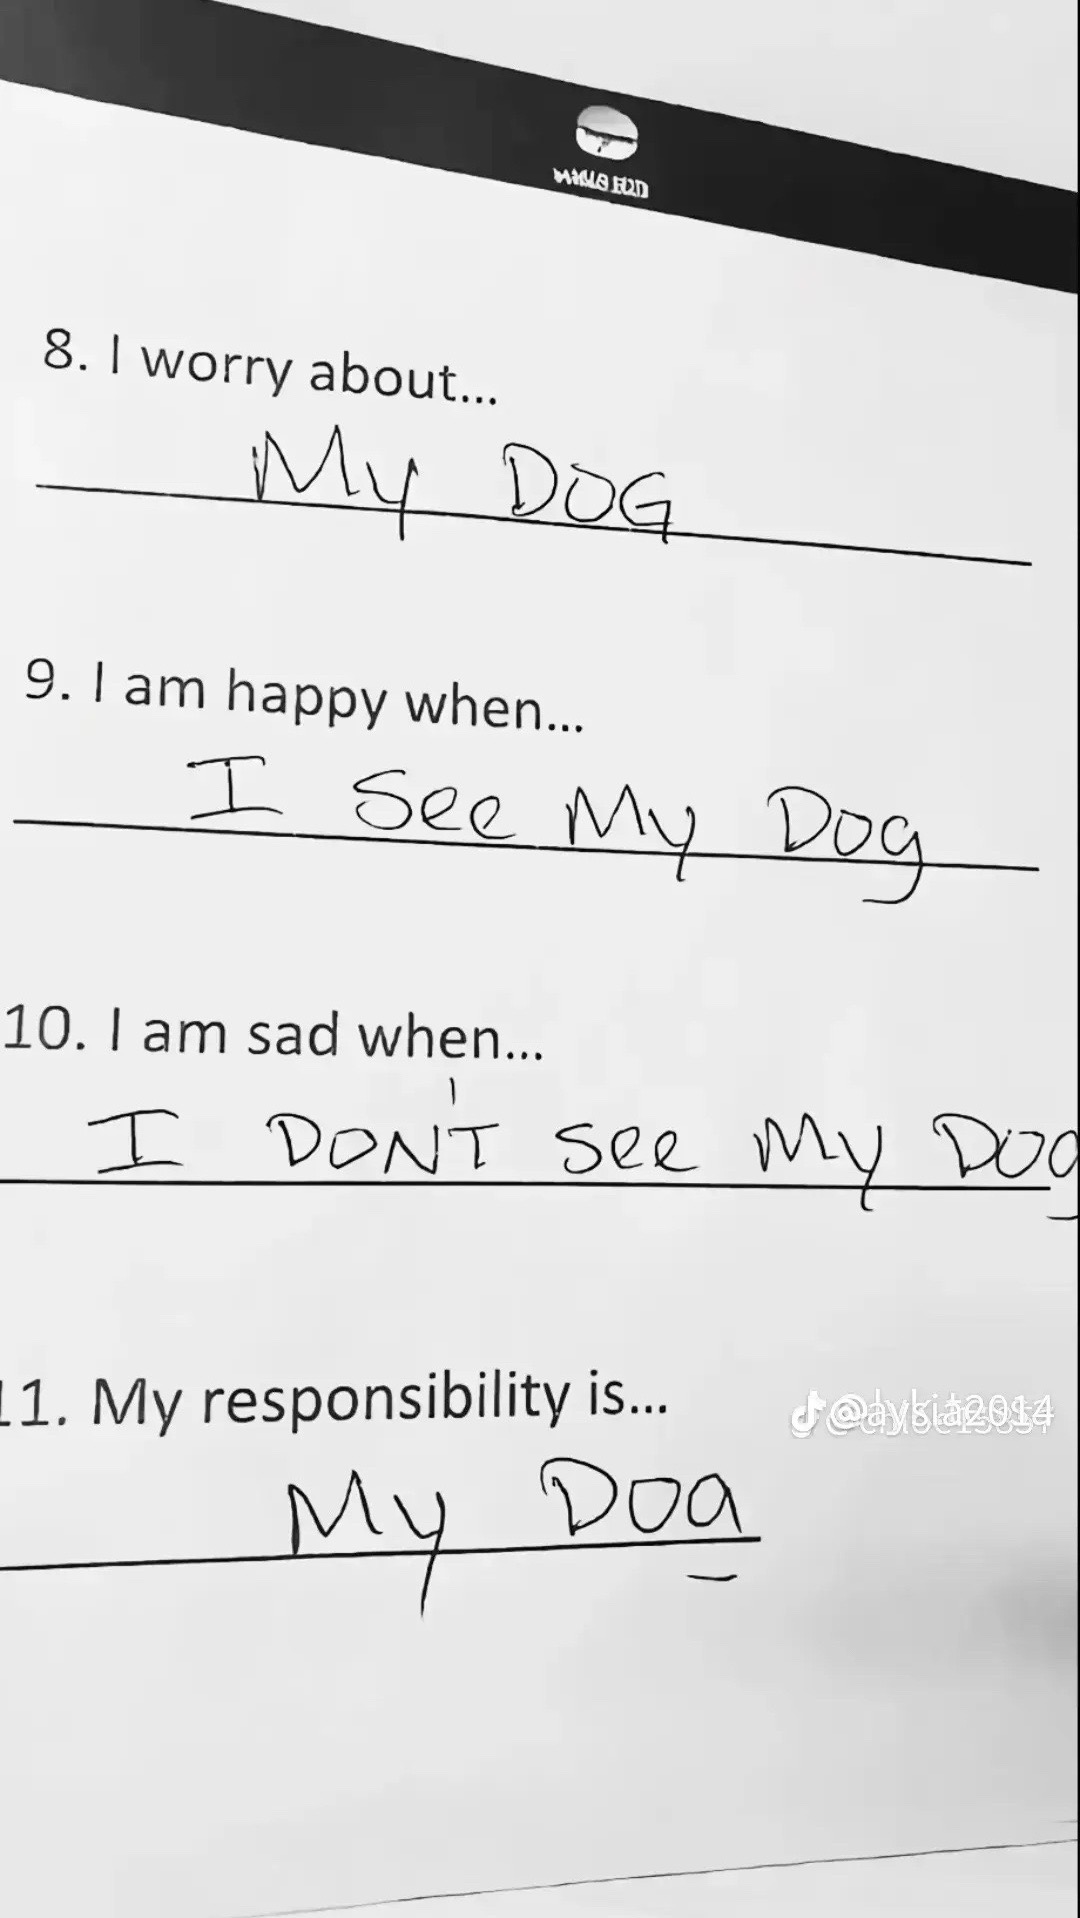 8. I worry about...
My DOG
9. I am happy when...
I See My Dog
10. I am sad when...
I DON'T See My Dog
11. My responsibility is...
My Dog